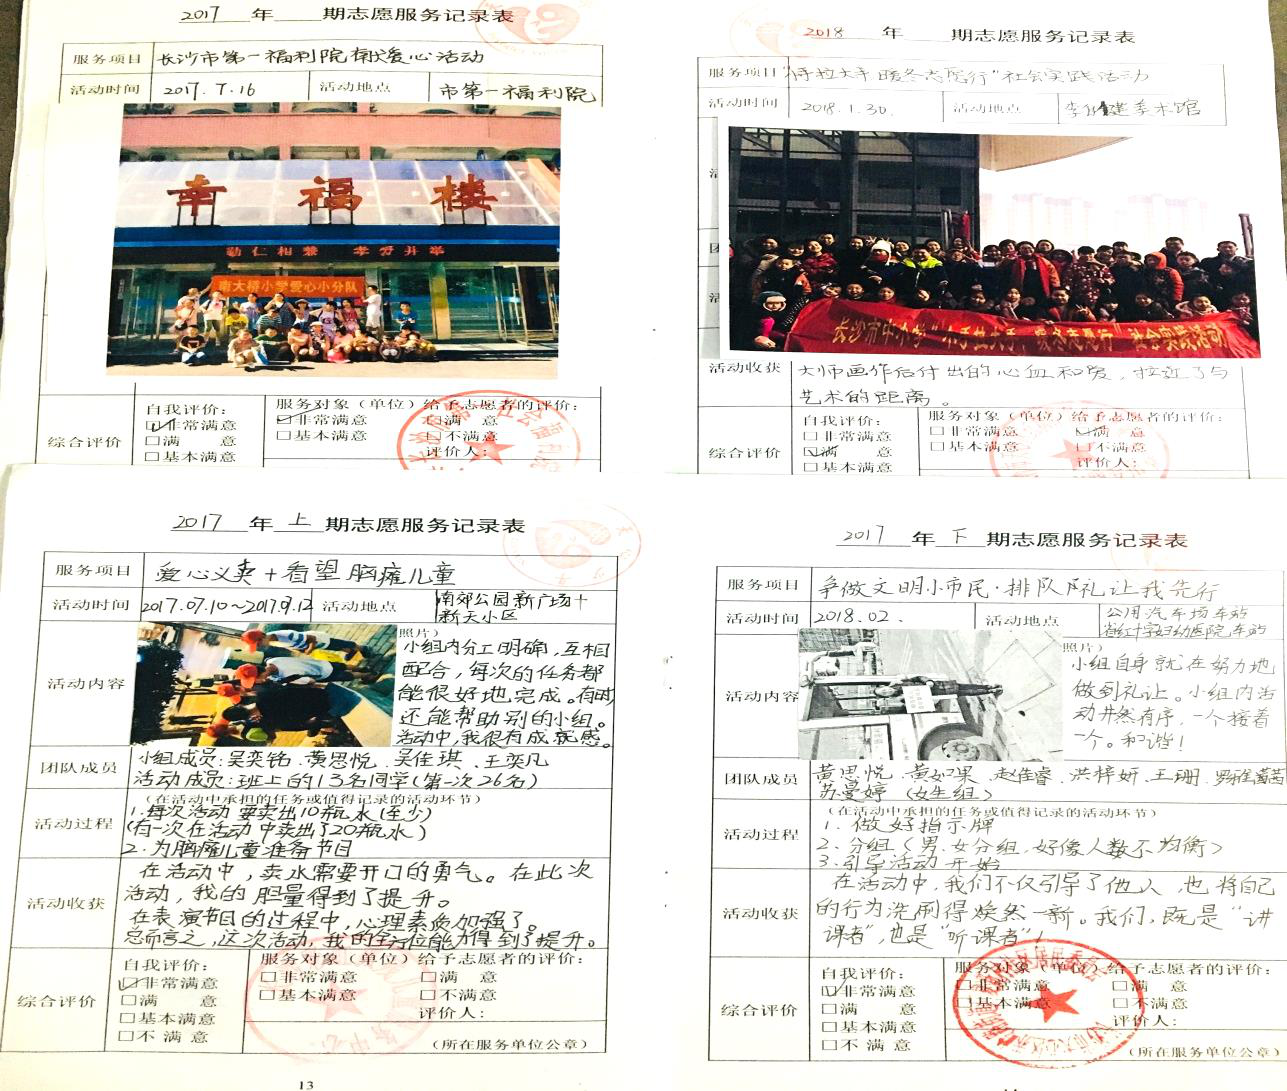 2017 年 期志愿服务记录表
服务项目 长沙市第一福利院献爱心活动
活动时间 2017.7.16 活动地点 市第一福利院
幸福楼
勤仁相兼 孝劳并举
南大桥小学爱心小分队
自我评价: 服务对象（单位）给予志愿者的评价:
☑非常满意 ☑非常满意 □满 意
□满 意 □基本满意 □不满意
综合评价 □基本满意 评价人:
2018 年 期志愿服务记录表
服务项目 手拉大手 暖冬志愿行"社会实践活动
活动时间 2018.1.30. 活动地点 李自健美术馆
长沙市中小学"小手拉大手 暖冬志愿行"社会实践活动
活动收获 大师画作后付出的心血和爱，拉近了与
艺术的距离。
自我评价: 服务对象（单位）给予志愿者的评价:
□非常满意 □非常满意 ☑满 意
☑满 意 □基本满意 □不满意
综合评价 □基本满意 评价人:
2017 年 上 期志愿服务记录表
服务项目 爱心义卖+看望脑瘫儿童
活动时间 2017.07.10~2017.9.12 活动地点 南郊公园新广场+
新天小区
照片）
活动内容 小组内分工明确，互相
配合，每次的任务都
能很好地完成。有时
还能帮助别的小组。
活动中，我很有成就感。
团队成员 小组成员:吴奕铭、黄思悦、吴佳琪、王奕凡
活动成员:班上的13名同学(第一次26名)
（在活动中承担的任务或值得记录的活动环节）
活动过程 1.每次活动要卖出10瓶水(至少)
(有一次在活动中卖出了20瓶水)
2.为脑瘫儿童准备节目
活动收获 在活动中，卖水需要开口的勇气。在此次
活动，我的胆量得到了提升。
在表演节目的过程中，心理素质加强了。
总而言之，这次活动，我的全方位能力得到了提升。
自我评价: 服务对象（单位）给予志愿者的评价:
☑非常满意 □非常满意 □满 意
□满 意 □基本满意 □不满意
综合评价 □基本满意 评价人:
□不 满 意 （所在服务单位公章）
13
2017 年 下 期志愿服务记录表
服务项目 争做文明小市民·排队礼让我先行
活动时间 2018.02. 活动地点 公用汽车场车站
省红十字妇幼医院车站
照片）
活动内容 小组自身就在努力地
做到礼让。小组内活
动井然有序，一个接着
一个。和谐！
团队成员 黄思悦、黄如果、赵佳睿、洪梓妍、王珊、
苏曼婷 （女生组）
（在活动中承担的任务或值得记录的活动环节）
活动过程 1.做好指示牌
2.分组（男、女分组，好像人数不均衡）
3.引导活动开始
活动收获 在活动中，我们不仅引导了他人，也将自己
的行为洗刷得焕然一新。我们，既是"讲
课者"，也是"听课者"！
自我评价: 服务对象（单位）给予志愿者的评价:
☑非常满意 □非常满意 □满 意
□满 意 □基本满意 □不满意
综合评价 □基本满意 评价人:
□不 满 意 （所在服务单位公章）